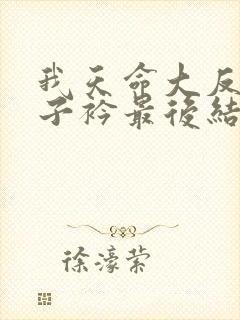 我天命大反
子衿最後結
徐濠萦